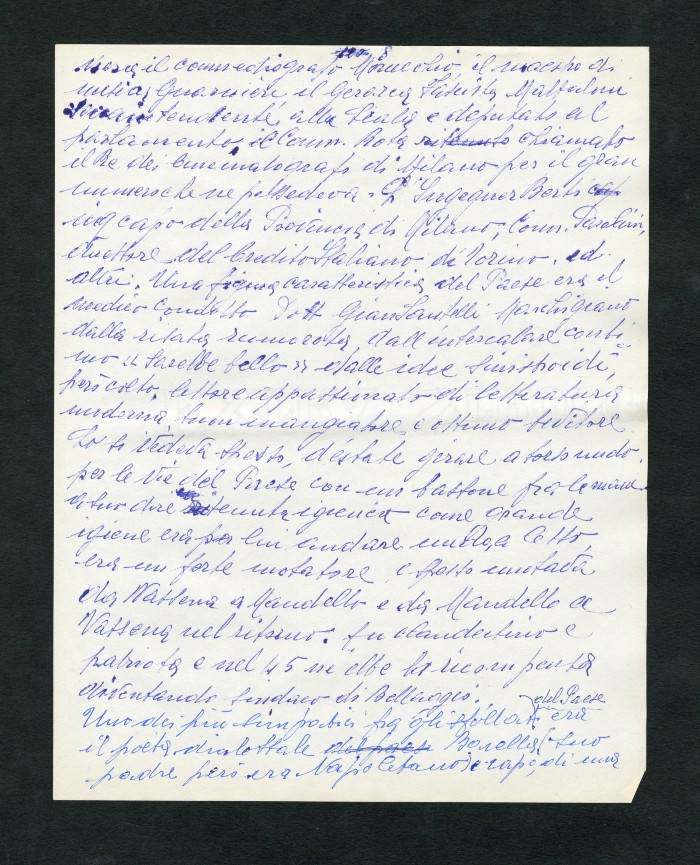 il commediografo il maestro di
Guarnieri il Gerarca fascista
alla Scala e deputato al
parlamento, il Comm. Rota chiamato
il Re dei Cinematografi di Milano per il gran
numero che ne possedeva. L'Ingegner Berti
ing capo della Provincia di Milano, Comm.
direttore del Credito Italiano di Torino. ed
altri. Una figura caratteristica del Paese era il
medico condotto Dott Marchigiano
dalla risata rumorosa, dall'intercalare conti-
nuo "Sarebbe bello" dalle idee sinistroidi,
però colto, lettore appassionato di letteratura
moderna, buon mangiatore e ottimo bevitore.
Lo si vedeva spesso, d'estate girare a torso nudo
per le vie del Paese con un bastone fra le mani
a suo dire era tenuta igienica come grande
igiene era per lui andare
era un forte nuotatore e spesso nuotava
da Vassena a Mandello e da Mandello a
Vassena nel ritorno. fu clandestino e
patriota e nel 45 ne ebbe la ricompensa
diventando Sindaco di Bellagio.
Uno dei più simpatici fra gli sfollati era
del Paese
il poeta dialettale Barella (suo
padre però era Napoletano) e capo, di una